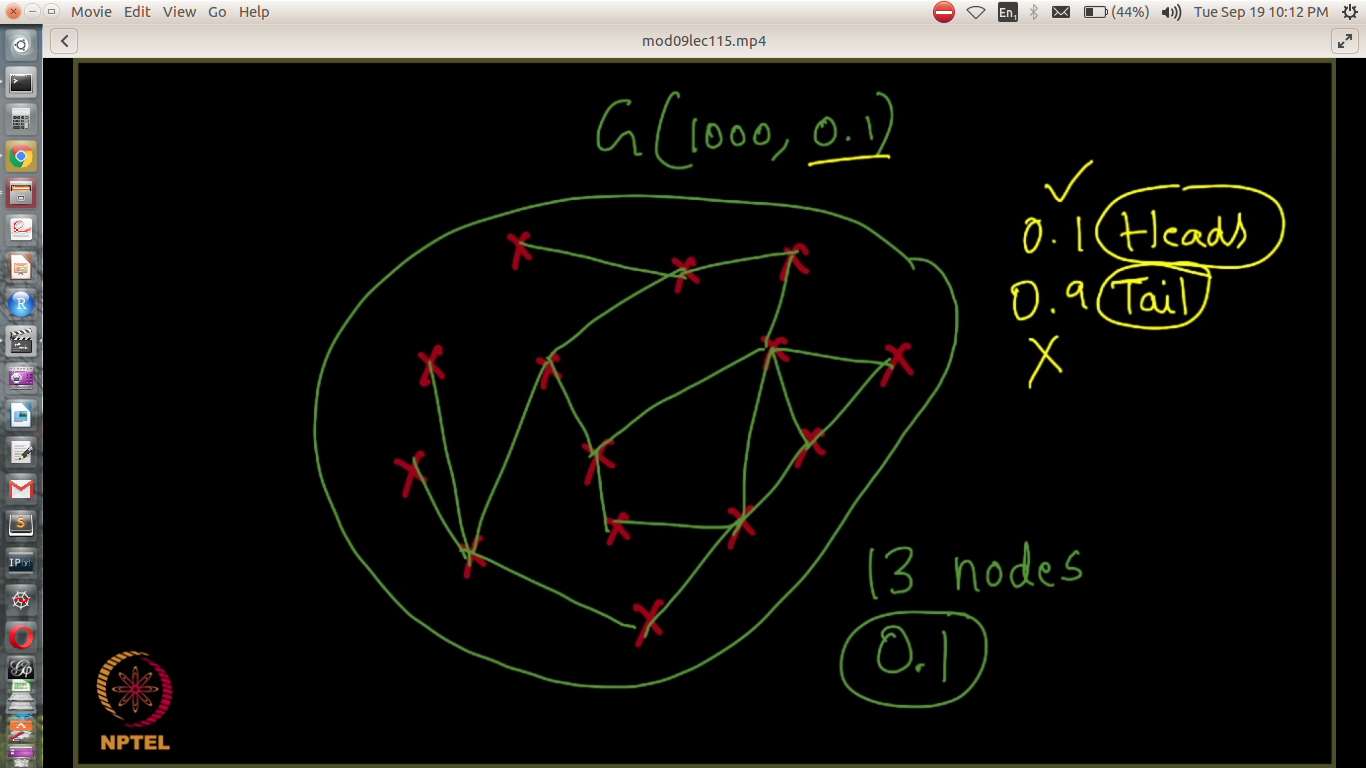 Movie Edit View Go Help
En1 (44%) Tue Sep 19 10:12 PM
mod09lec115.mp4
G(1000, 0.1)
✓
0.1 Heads
0.9 Tail
X
13 nodes
0.1
NPTEL
IP[y]